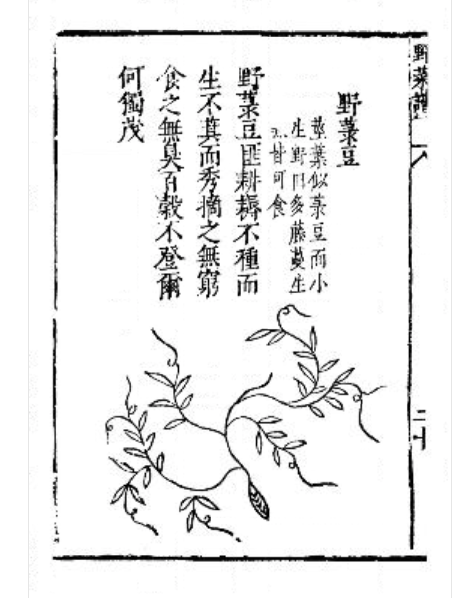 野菜譜
野菉豆
莖葉似菉豆而小
生野田多藤蔓生
可食
野菉豆匪耕耨不種而
生不萁而秀摘之無窮
食之無臭百穀不登爾
何獨茂